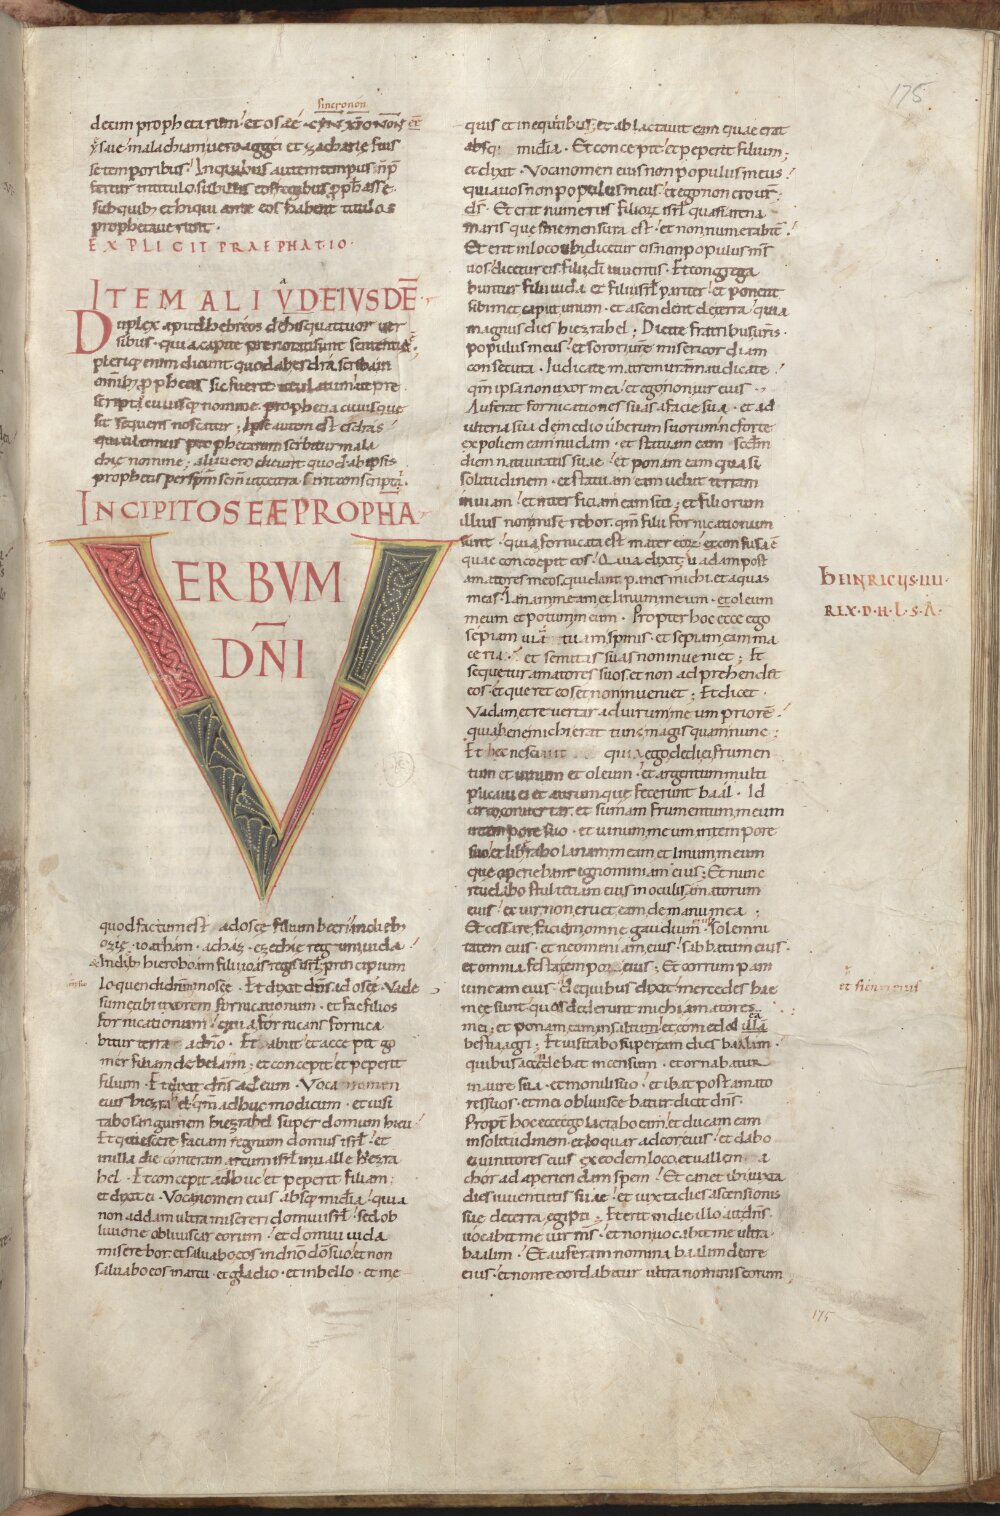 175
sincronon
decim prophetarum et osaé CYN XPONON eē
ysaie malachiam uero aggei et zacharię fuis
se temporibus. In quibus autem tempus n̄ p̄
fertur in titulo sub illis eos regibus pphasse
sub quib; et hi qui ante eos habent titulos
prophetauerunt.
EXPLICIT PRAEPHATIO.
ITEM ALIVD EIVSDĒ.
Duplex apud hebreos de his quattuor uer
sibus. qui a capite prenotati sunt sententia.
plerique enim dicunt quod ab esdra scriba in
omīb; pphetis sic fuerit titulatum ut pre
scripti cuiusq; nomine prophetia cuius que
sit sequens noscatur. Ipse autem est esdras
qui ultimus prophetarum scribitur mala
chie nomine; alii uero dicunt quod ab ipsis
prophetis per spm̄ scm̄ ut cetera sint conscripta.
INCIPIT OSEÆ PROPHA
VERBVM
DN̄I
quod factum est ad oseę filium beeri in dieb;
ozię. ioathām. achaz. ezechię regum iuda.
& In dieb; hieroboam filii ioas regis isrl̄. principium
loquendi dn̄m in oseę. Et dixit dn̄s ad oseę. Vade
sume tibi uxorem fornicationum. et fac filios
fornicationum. quia fornicans fornica
bitur terra a dn̄o. Et abiit et accepit go
mer filiam debelaim; et concepit et peperit
filium. Et dixit dn̄s ad eum. Voca nomen
eius hiezrahel. qm̄ adhuc modicum. et uisi
tabo sanguinem hiezrahel super domum hieu.
Et quiescere faciam regnum domus isrl̄. et
in illa die conteram arcum isrl̄ in ualle hiezra
hel. Et concepit adhuc et peperit filiam;
et dixit ei. Voca nomen eius absq; mīdīa. quia
non addam ultra misereri domui isrl̄. sed ob
liuione obliuiscar eorum. et domui iuda
miserebor. et saluabo eos in dn̄o dō suo. et non
saluabo eos in arcu. et gladio. et in bello. et in e
quis et in equitibus; et ablactauit eam quae erat
absq; mīdīa. Et concepit et peperit filium;
et dixit. Voca nomen eius non populus meus.
quia uos non populus meus. et ego non ero ur̄
dš. Et erit numerus filiorum isrl̄ quasi arena
maris que sine mensura est. et non numerabit̄.
Et erit in loco ubi dicetur eis non populus m̄s
uos dicetur eis. filii dī uiuentis. Et congrega
buntur filii iuda et filii isrl̄ pariter. et ponent
sibimet caput unum. et ascendent de terra. quia
magnus dies hiezrahel; Dicite fratribus ur̄is.
populus meus. et sorori ur̄e misericordiam
consecuta. Iudicate matrem ur̄am iudicate
qm̄ ipsa non uxor mea. et ego non uir eius.
Auferat fornicationes suas a facie sua. et ad
ulteria sua de medio uberum suorum ne forte
expoliem eam nudam. et statuam eam secdm̄
diem natiuitatis suae. et ponam eam quasi
solitudinem. et statuam eam uelut terram
inuiam. et interficiam eam siti; et filiorum
illius non miserebor. qm̄ filii fornicationum
sunt. quia fornicata est mater eorum. et confusa ē
quae concoepit eos. Quia dixit; uadam post
amatores meos. qui dant panes michi. et aquas
meas. Lanam meam et linum meum. et oleum
meum et potum meum. Propter hoc ecce ego
sepiam uiā tuam spinis. et sepiam eam ma
ceria. et semitas suas non inueniet; Et
sequetur amatores suos. et non adprehendet
eos. et queret eos et non inueniet; Et dicet.
Vadam et reuertar ad uirum meum priorē.
quia bene michi erat tunc magis quam nunc;
Et hec nesciuit quia ego dedi ei frumen
tum et uinum et oleum. et argentum multi
plicaui ei et aurum. que fecerunt baal. Id
circo conuertar. et sumam frumentum meum
in tempore suo. et uinum meum in tempore
suo. et liberabo lanam meam et linum meum
que operiebant ignominiam eius; Et nunc
reuelabo stultitiam eius in oculis amatorum
eius. et uir non eruet eam de manu mea;
Et cessare faciam omne gaudium. solemni
tatem eius. et neomeniam eius. sabbatum eius.
et omnia festa tempora eius; Et corrumpam
uineam eius. de quibus dixit. mercedes hae
meę sunt quos dederunt michi amatores
mei. et ponam eam in saltum. et comedet illā
bestia agri; Et uisitabo super eam dies baalim.
quibus accendebat incensum. et ornabatur
inaure sua. et monili suo. et ibat post amato
res suos. et mei obliuiscebatur. dicit dn̄s.
Propt̄ hoc ecce ego lactabo eam. et ducam eam
in solitudinem. et loquar ad cor eius. et dabo
ei uinitores eius ex eodem loco. et uallem a
chor ad aperiendam spem. Et canet ibi iuxta
dies iuuentutis suae. et iuxta dies ascensionis
suę de terra egipti; Et erit in die illo ait dn̄s.
uocabit me uir m̄s. et non uocabit me ultra
baalim. Et auferam nomina baalim de ore
eius. et non recordabitur ultra nominis eorum
HEINRICUS. IIII.
REX. D. H. L. S. A.
175